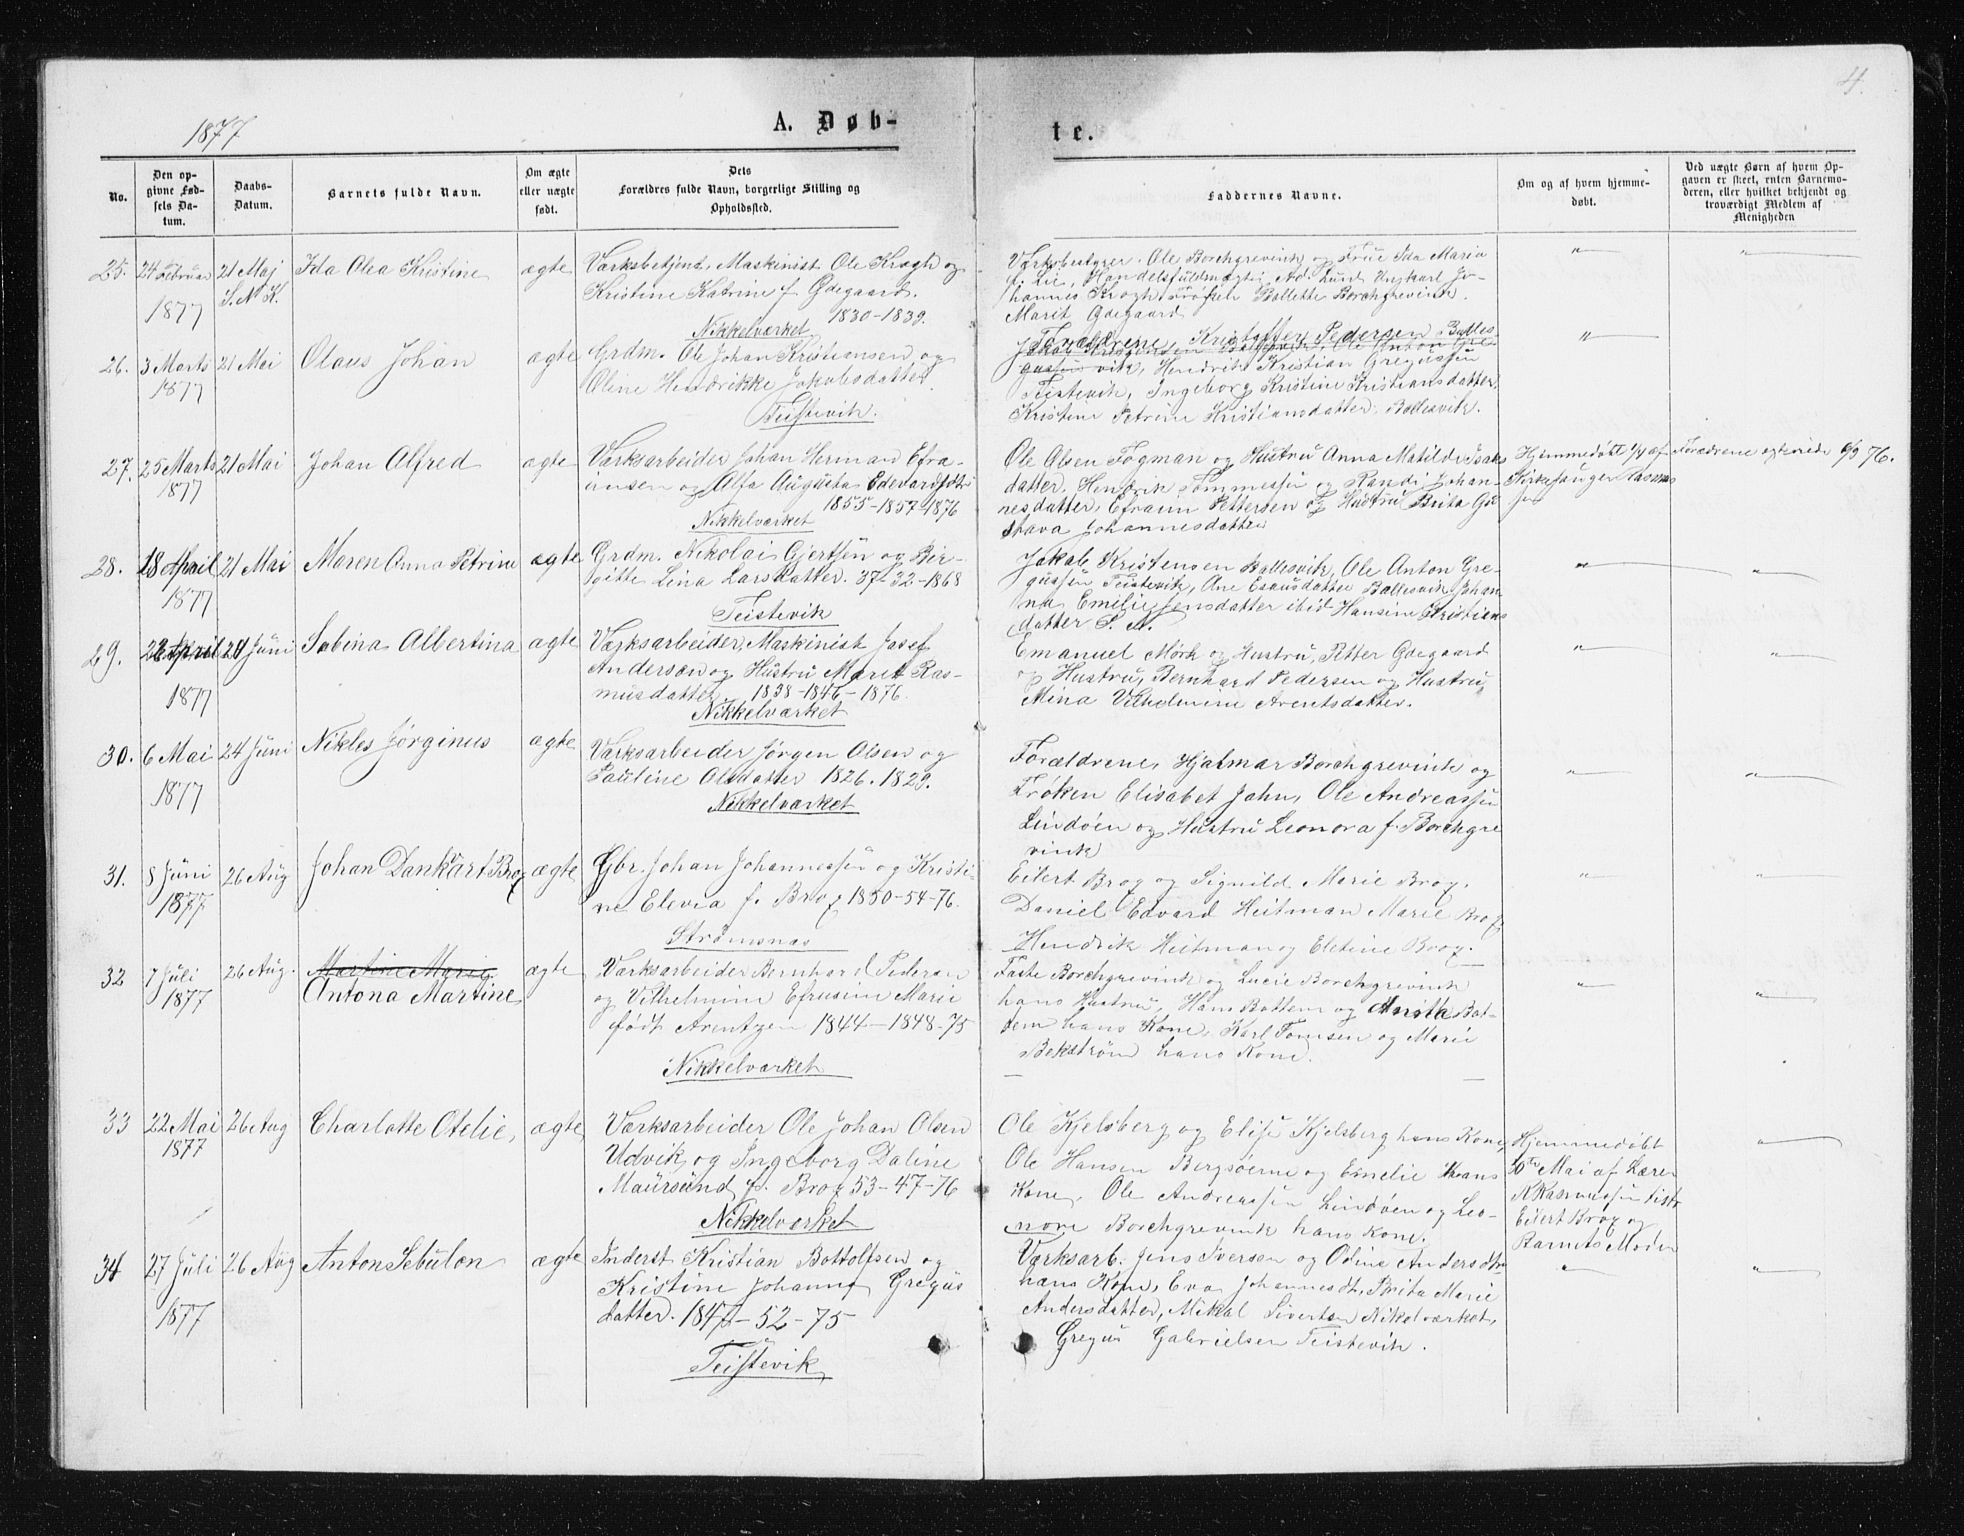 4.
1877
A. Døb-
te.
No.
Den op-
givne Fød-
sels Da-
tum.
Daabs-
Datum.
Barnets fulde Navn.
Om ægte
eller uægte
født.
Dets
Forældres fulde Navn, borgerlige Stilling og
Opholdssted.
Faddernes Navne.
Om og af hvem hjemme-
døbt.
Ved uægte Børn af hvem Op-
gaven er skeet, enten Barnemo-
deren, eller hvilket bekjendt og
troværdigt Medlem af
Menigheden
25. 24 Februar 1877
21 Maj
S. N. K.
Ida Olea Kristine
ægte
Værksbetjent, Maskinist Ole Krogh og
Kristine Katrine f Ødegaard.
1830-1839.
Nikkelværket
Værksbestyrer Ole Borchgrevink og Frue Ida Maria
f. Lie, Handelsfuldmægtig Ad. Lund Ungkarl Jo-
hannes Krogh Frøken Ballette Borchgrevink.
Marit Ødegaard
26. 3 Marts 1877
21 Mai
Olaus Johan
ægte
Grdm. Ole Johan Kristiansen og
Oline Hendrikke Jakobsdatter.
Teistevik.
Forældrene, Kristoffer Pedersen Balles-
vik, Hendrik Kristian Gregussen
Teistevik, Ingeborg Kristine Kristiansdatter
Kristine Petrine Kristiansdatter. Ballesvik.
27. 25 Marts 1877
21 Mai
Johan Alfred
ægte
Værksarbeider Johan Herman Efra-
imsen og Alfa Augusta Edevardsdtr
1855-1857-1876
Nikkelværket
Ole Olsen Fogman og Hustru Anna Matilde Isaks
datter, Hendrik Tommessen og Randi Johan-
nesdatter, Efraim Pettersen og Hustru Brita Gu
stava Johannesdatter
Hjemmedøbt 1/4 af
Kirkesanger Rasmus
sen
Forældrene egteviede 6/9 76.
28. 18 April 1877
21 Mai
Maren Anna Petrine
ægte
Grdm. Nikolai Gjertsen og Bir-
gitte Lina Larsdatter. 37-32-1868
Teistevik
Jakob Kristensen Ballesvik, Ole Anton Gre-
gussen Teistevik, Ane Esausdatter Ballesvik Johan
na Emilie Jensdatter ibid Hansine Kristians
datter S. N.
29. 22 April 1877
24 Juni
Sabina Albertina
ægte
Værksarbeider, Maskinist Josef
Andersen og Hustru Marit Ras-
musdatter 1838-1846-1876.
Nikkelværket
Emanuel Mørk og Hustru, Petter Ødegaard
og Hustru, Bernhard Pedersen og Hustru
Mina Vilhelmine Arentsdatter.
30. 6 Mai 1877
24 Juni
Nikles Jørginus
ægte
Værksarbeider Jørgen Olsen og
Pauline Olsdatter 1826. 1829.
Nikkelværket
Forældrene, Hjalmar Borchgrevink og
Frøken Elisabet Jahn, Ole Andreassen
Lindøen og Hustru Leonora f. Borchgre
vink
31. 8 Juni 1877
26 Aug
Johan Dankvart Brox
ægte
Gbr. Johan Johannessen og Kristi-
ne Elevia f. Brox 1850-54-76.
Strømsnæs
Eilert Brox og Signild Marie Brox.
Daniel Edvard Heitman Marie Brox
Hendrik Heitman og Eletine Brox.
32 7 Juli 1877
26 Aug.
Martine Marie
Antona Martine
ægte
Værksarbeider Bernhard Pedersen
og Vilhelmine Efrusine Marie
født Arentzen 1844-1848-75
Nikkelværket
Faste Borchgrevink og Lucie Borchgrevink
hans Hustru, Hans Bottem og Bot-
tem hans Kone, Karl Tomsen og Marie
Bekstrøm hans Kone.
33 22 Mai 1877
26 Aug
Charlotte Otelie
ægte
Værksarbeider Ole Johan Olsen
Udvik og Ingeborg Daline
Maursund f. Brox 53-47-76
Nikkelværket
Ole Kjelsberg og Elise Kjelsberg hans Kone,
Ole Hansen Bergsøerne og Emelie hans
Kone, Ole Andreassen Lindøen og Leo-
nore Borchgrevink hans Kone.
Hjemmedøbt
30te Mai af Lærer
N Rasmussen
Eilert Brox og
Barnets Moder
34 27 Juli 1877
26 Aug
Anton Sebulon
ægte
Inderst Kristian Bottolfsen og
Kristine Johanne Gregus
datter. 1847-52-75
Teistevik
Værksarb. Jens Iversen og Odina Andersdtr
hans Kone, Eva Johannesdt, Brita Marie
Andersdatter, Mikal Sivertsen Nikelværket,
Gregus Gabrielsen Teistevik.